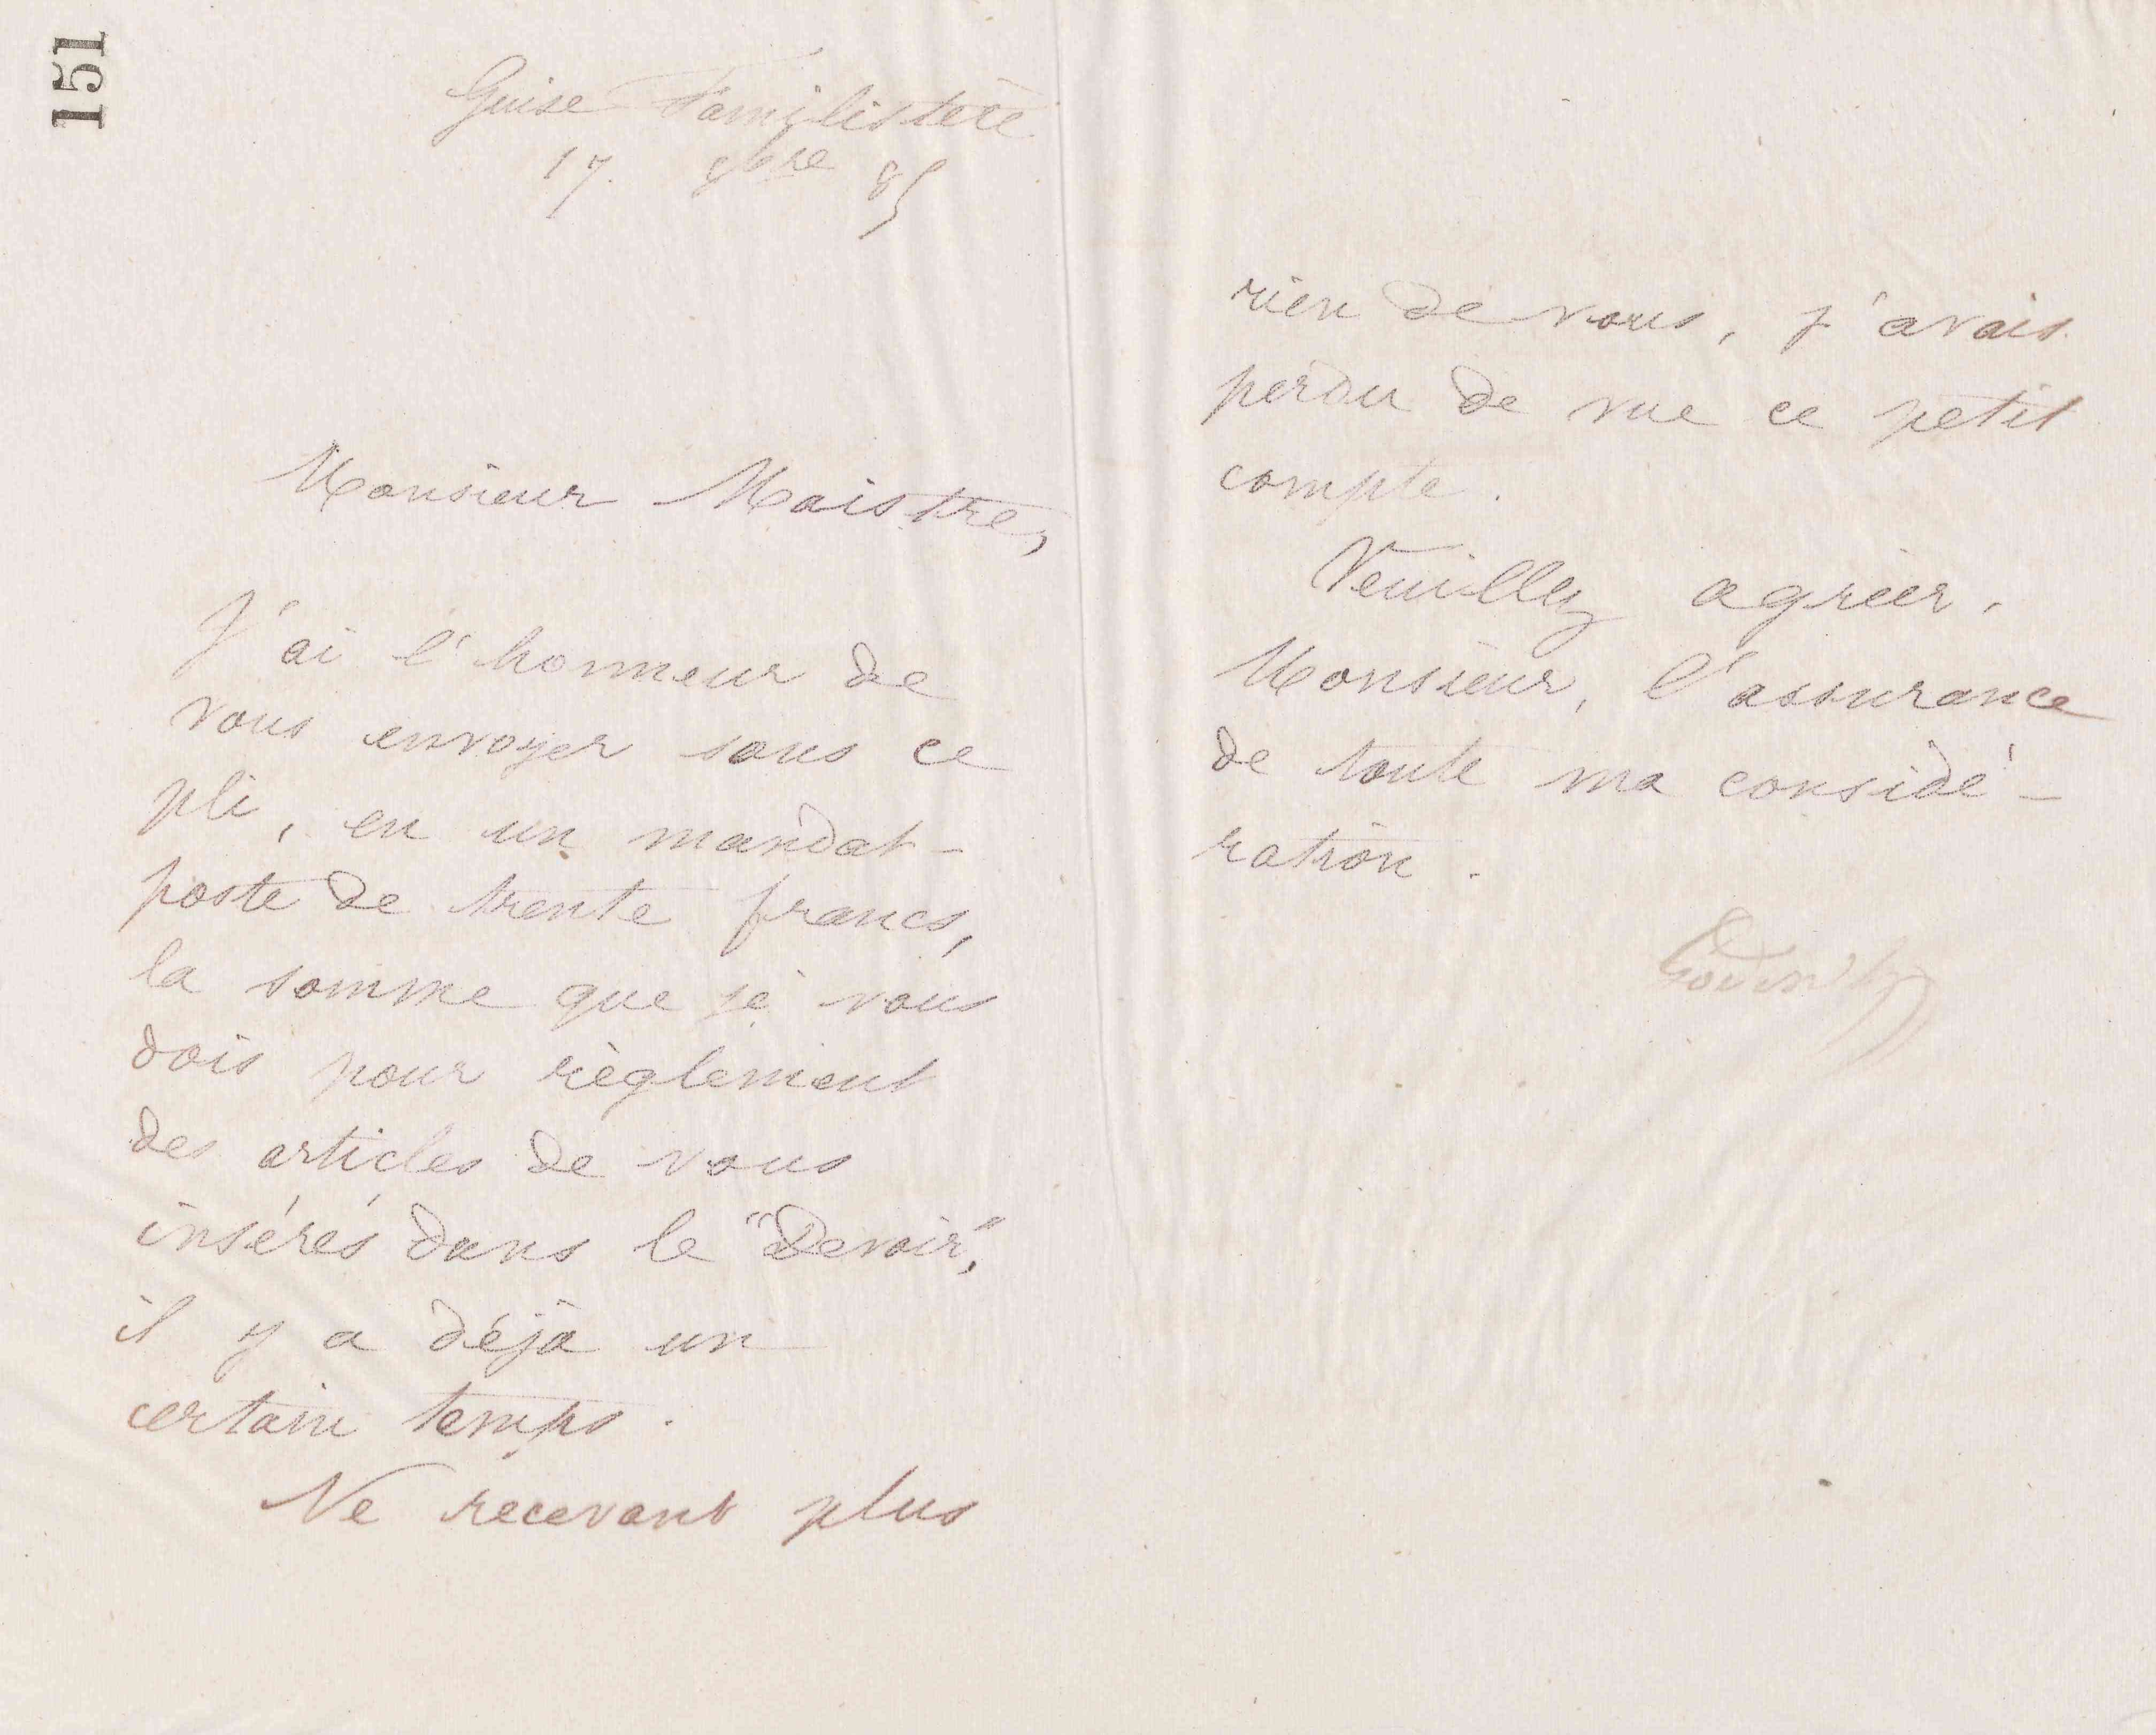 151
Guise Familistère
17. 8bre 85
Monsieur Maistre,
J'ai l'honneur de
vous envoyer sous ce
pli, en un mandat-
poste de trente francs,
la somme que je vous
dois pour règlement
des articles de vous
insérés dans le "Devoir",
il y a déjà un
certain temps.
Ne recevant plus
rien de vous, j'avais
perdu de vue ce petit
compte.
Veuillez agréer,
Monsieur, l'assurance
de toute ma considé-
ration.
Godin